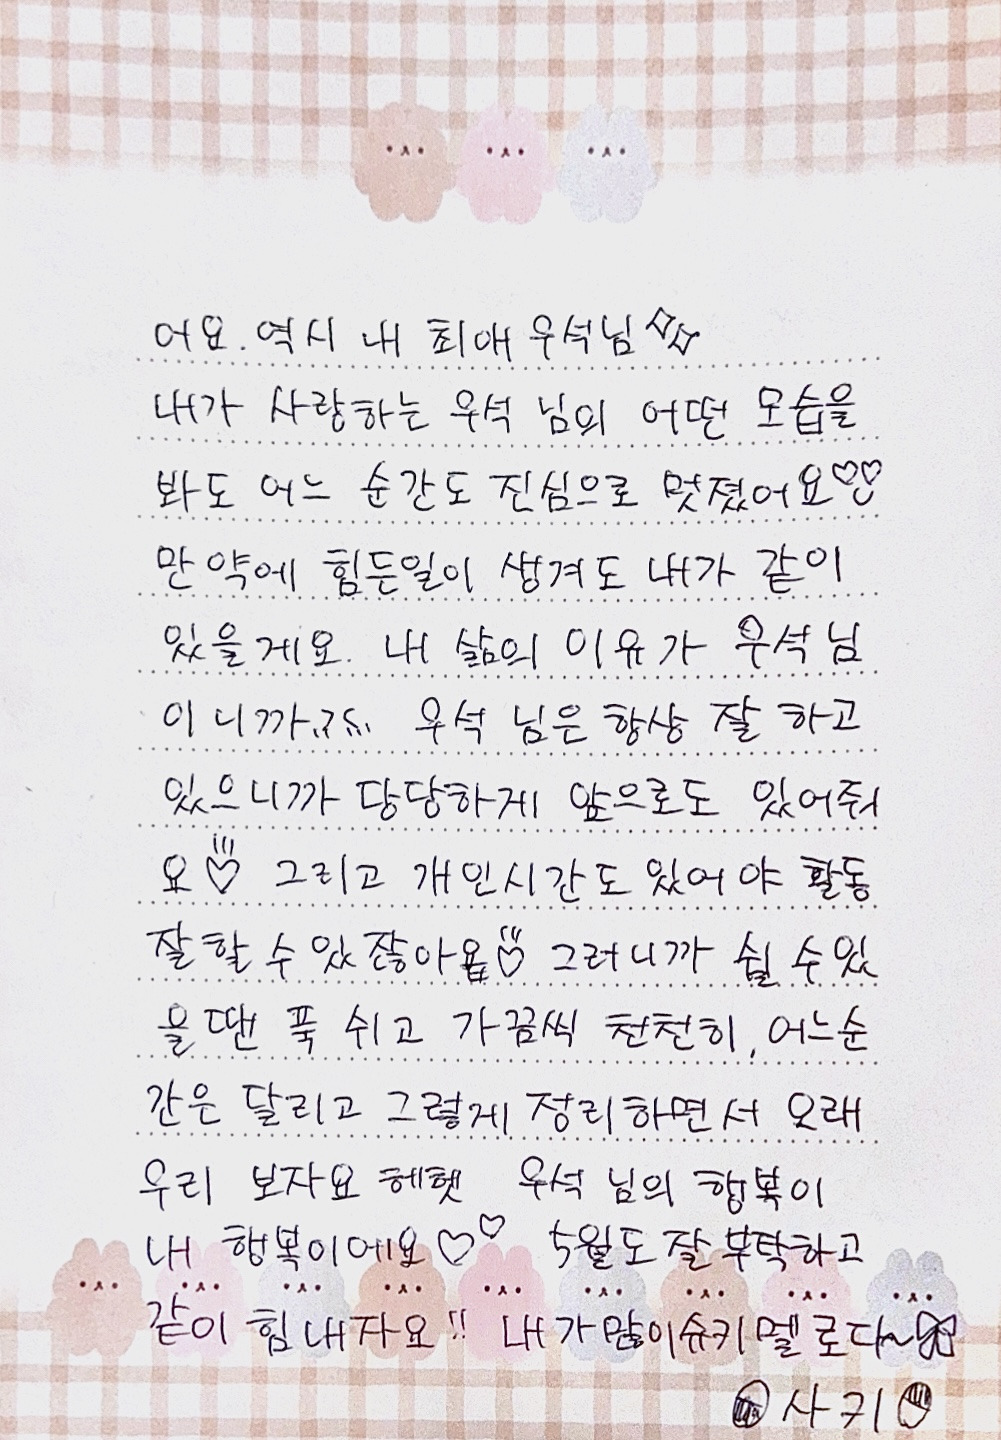 어요. 역시 내 최애 우석님
내가 사랑하는 우석 님의 어떤 모습을
봐도 어느 순간도 진심으로 멋졌어요♡♡
만약에 힘든일이 생겨도 내가 같이
있을게요. 내 삶의 이유가 우석님
이니까. 우석 님은 항상 잘 하고
있으니까 당당하게 앞으로도 있어줘
요♡ 그리고 개인시간도 있어야 활동
잘할 수 있잖아욥♡ 그러니까 쉴 수 있
을 땐 푹 쉬고 가끔씩 천천히, 어느순
간은 달리고 그렇게 정리하면서 오래
우리 보자요 헤헷 우석 님의 행복이
내 행복이에요♡♡ 5월도 잘 부탁하고
같이 힘내자요!! 내가 많이 슈키멜로다~
사키